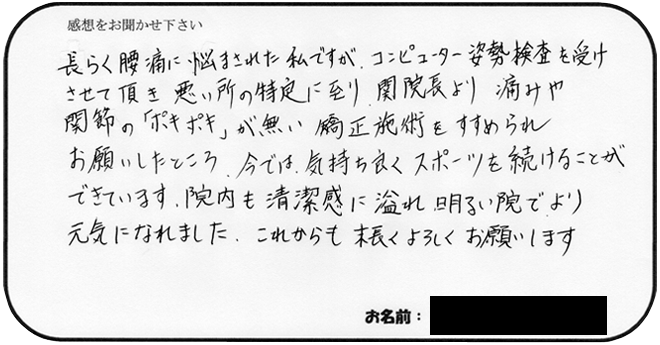 感想をお聞かせ下さい
長らく腰痛に悩まされた私ですが、コンピューター姿勢検査を受け
させて頂き 悪い所の特定に至り、関院長より 痛みや
関節の「ポキポキ」が無い 矯正施術をすすめられ
お願いしたところ、今では、気持ち良くスポーツを続けることが
できています。院内も清潔感に溢れ、明るい院で、より
元気になれました。これからも 末長くよろしくお願いします
お名前：